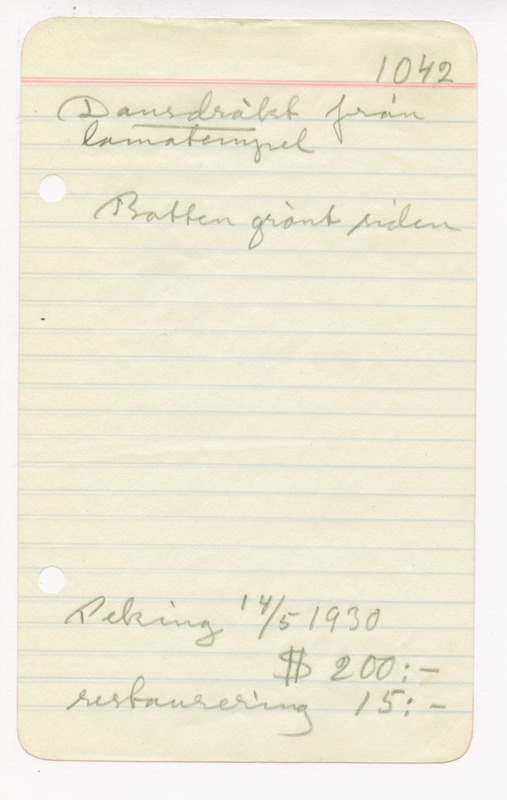 1042
Dansdräkt från
lamatempel
Botten grönt siden
Peking 14/5 1930
$ 200:-
restaurering 15:-